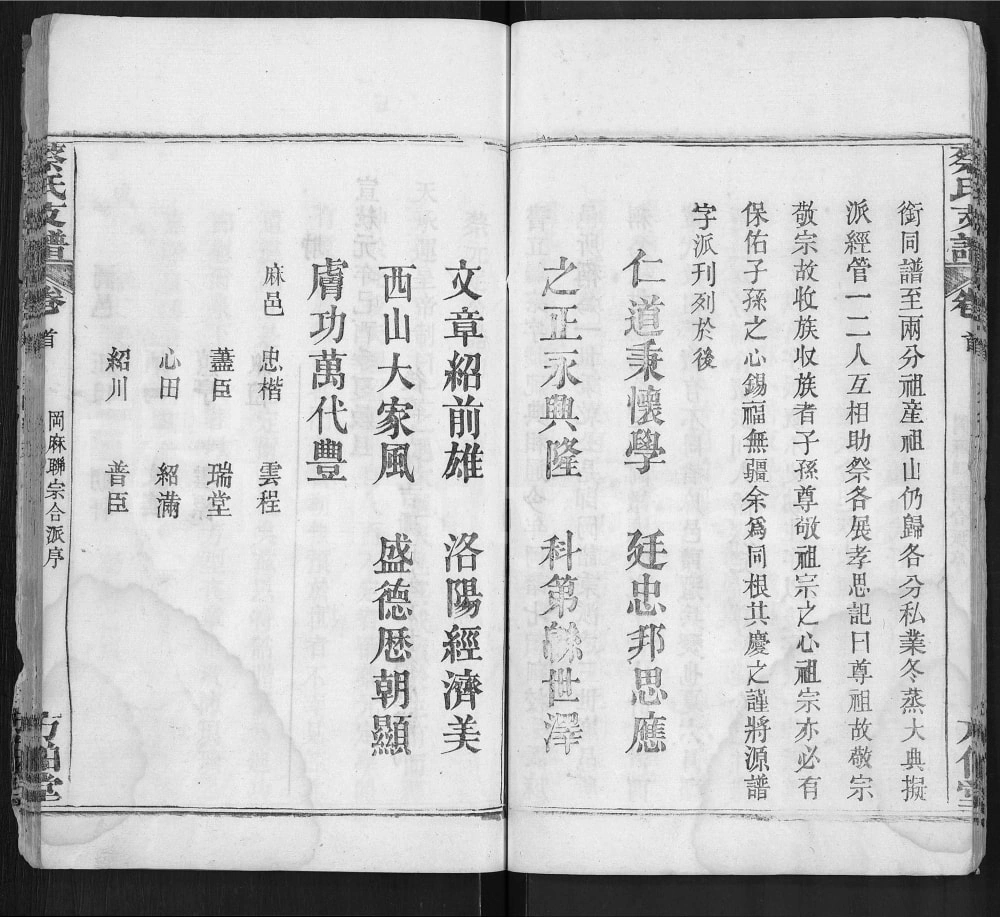 蔡氏支譜 卷首
銜同譜至兩分祖産祖山仍歸各分私業冬蒸大典擬
派經管一二人互相助祭各展孝思記曰尊祖故敬宗
敬宗故收族收族者子孫尊敬祖宗之心祖宗亦必有
保佑子孫之心錫福無疆余爲同根共慶之謹將源譜
字派刋列於後
仁道秉懷學 廷忠邦思應
之正永興隆 科第緜世澤
文章紹前雄 洛陽經濟美
西山大家風 盛德厯朝顯
膚功萬代豐
麻邑 忠楷 雲程
藎臣 瑞堂
心田 紹滿
紹川 普臣
蔡氏支譜 卷首 岡麻聯宗合派序